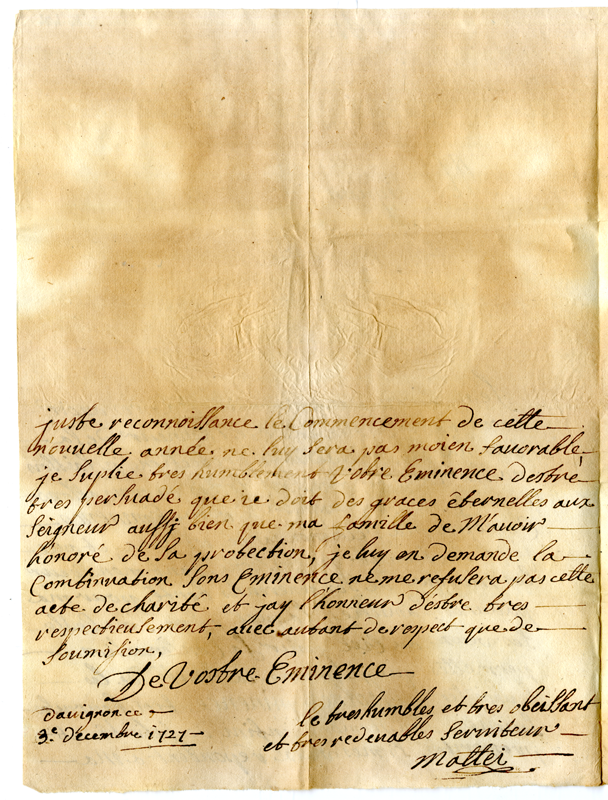 juste reconnoissance le Commencement de cette
nouuelle année ne luy sera pas moien fauorable,
je suplie tres humblement Vôtre Eminence destre
tres persuadé que je doit des graces êternelles aux
Seigneur aussj bien que ma famille de M'auoir
honoré de sa protection, je luy en demande la
Continuation Sons Eminence ne me refusera pas cette
acte de charité et jay l'honneur d'éstre tres
respectieusement, auec autant de respect que de
soumision,
De Vostre Eminence
dauignon ce
3.e décembre 1727
le tres humbles et tres obeissant
et tres redeuables Seruiteur
Mattei